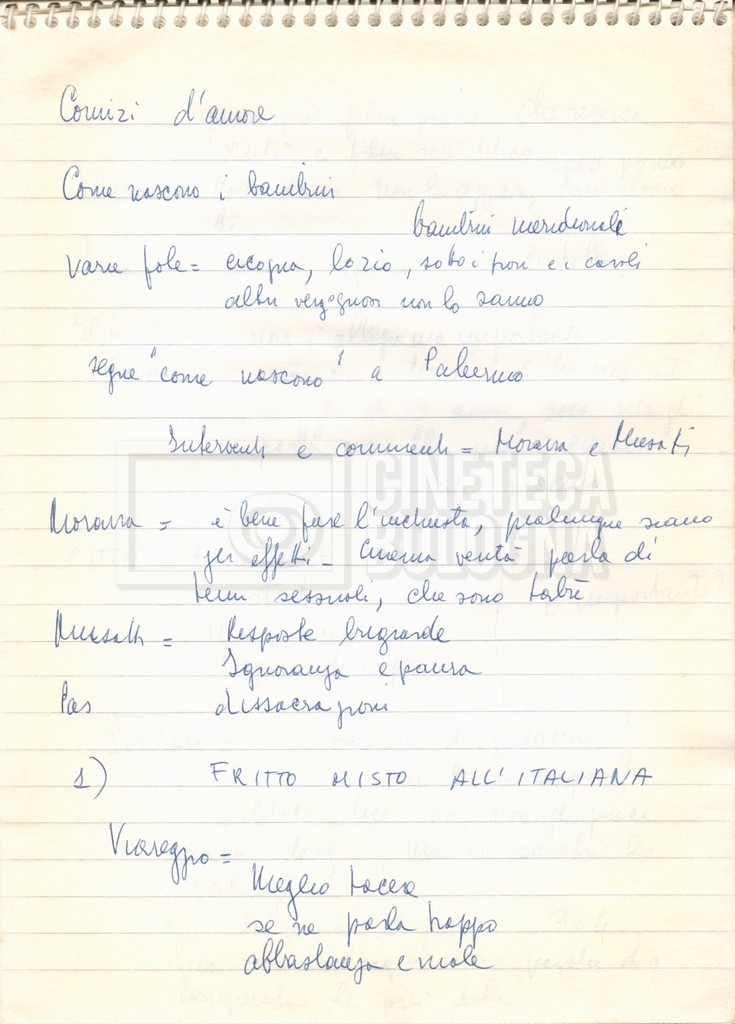 Comizi d'amore
Come nascono i bambini
bambini meridionali
varie fole = cicogna, lo zio, sotto i fiori e i cavoli
altri vergognosi non lo sanno
segue "come nascono" a Palermo
Interventi e commenti = Moravia e Musatti
CINETECA
BOLOGNA
Moravia = è bene fare l'inchiesta, qualunque siano
gli effetti - Cinema verità parla di
temi sessuali, che sono tabù
Musatti = Risposte bugiarde
Ignoranza e paura
Pas dissacrazioni
1) FRITTO MISTO ALL'ITALIANA
Viareggio =
Meglio tacere
se ne parla troppo
abbastanza e male